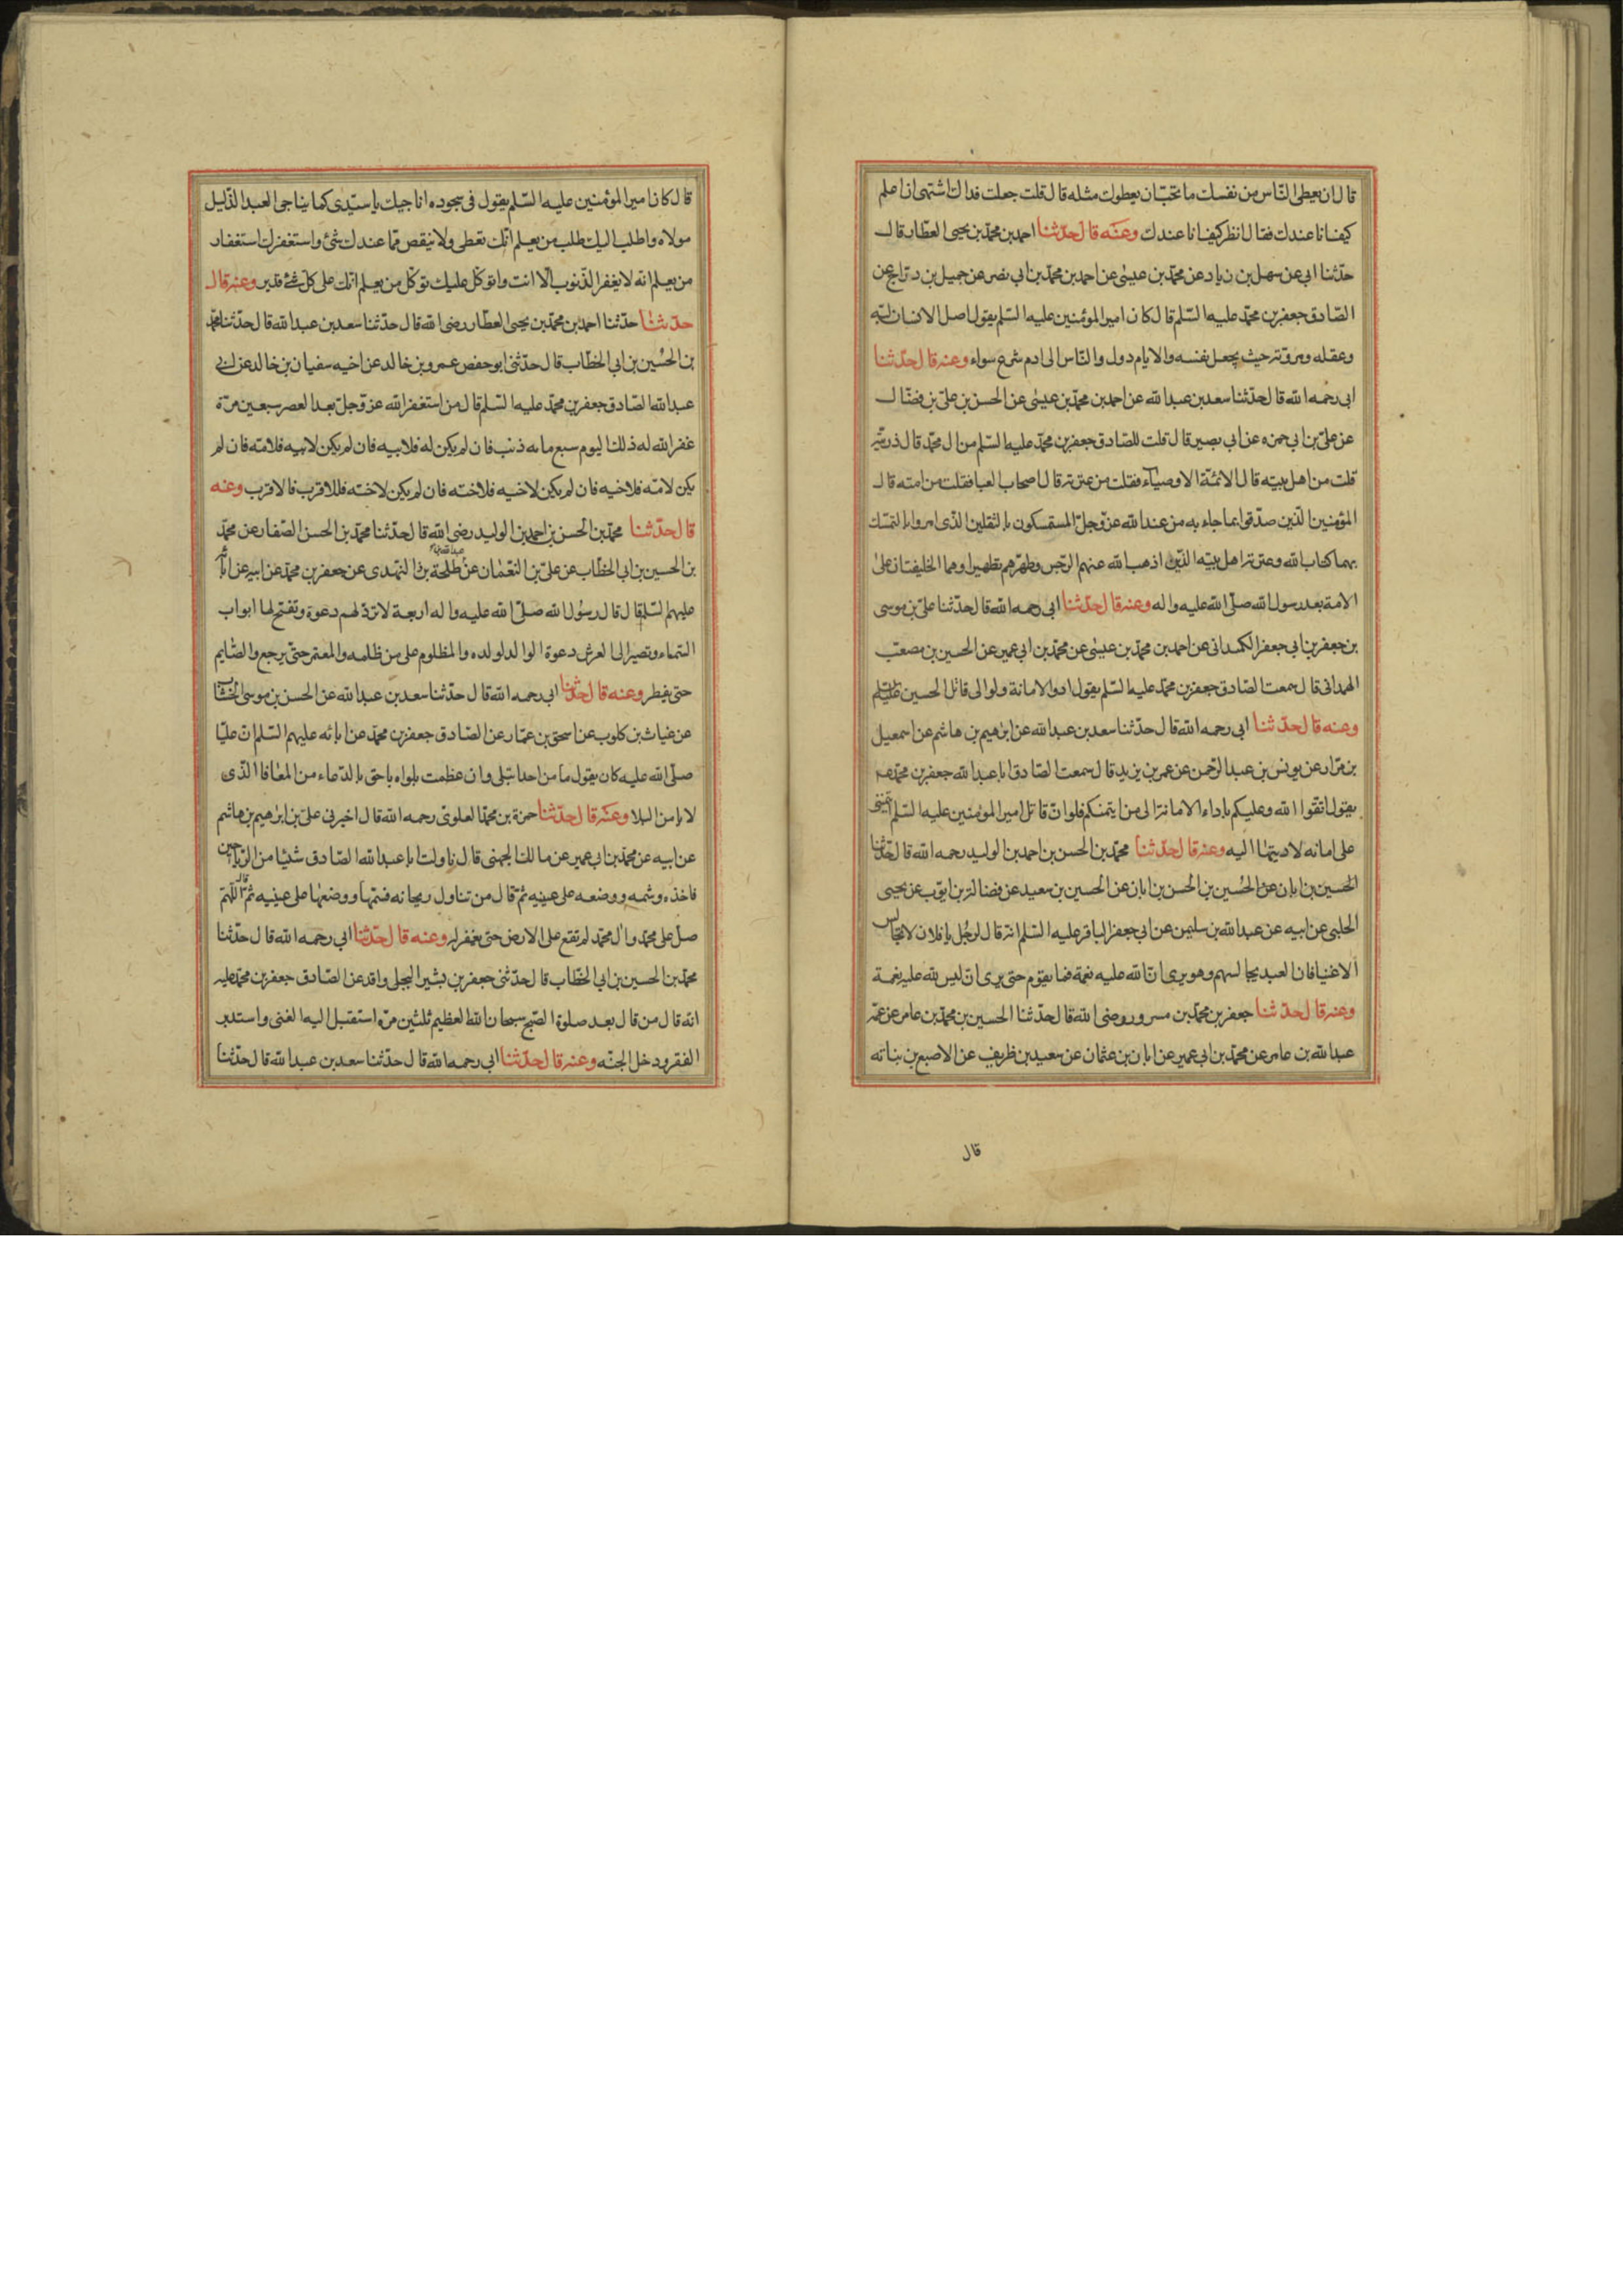 قال ان يعطى النّاس من نفسك ما تحبّ ان يعطوك مثله قال قلت جعلت فداك اشتهى ان اعلم
كيف انا عندك فقال انظر كيف انا عندك وعنه قال حدّثنا احمد بن محمّد بن يحيى العطّار قال
حدّثنا ابى عن سهل بن زياد عن محمّد بن عيسى عن احمد بن محمّد بن ابى نصر عن جميل بن درّاج عن
الصّادق جعفر بن محمّد عليه السّلم قال كان امير المؤمنين عليه السّلم يقول اصل الانسان لبّه
وعقله ومروّته حيث يجعل نفسه والايام دول والنّاس الى ادم شرع سواء وعنه قال حدّثنا
ابى رحمه الله قال حدّثنا سعد بن عبد الله عن احمد بن محمّد بن عيسى عن الحسن بن علىّ بن فضّال
عن علىّ بن ابى حمزه عن ابى بصير قال قلت للصّادق جعفر بن محمّد عليه السّلم من ال محمّد قال ذريّته
قلت من اهل بيته قال الائمّة الاوصيآء فقلت من عترته قال اصحاب العبا فقلت من امته قال
المؤمنين الّذين صدّقوا بما جاء به من عند الله عزّ وجلّ المستمسكون بالثقلين الذى امروا بالتمسّك
بهما كتاب الله وعترته اهل بيته الّذين اذهب الله عنهم الرّجس وطهّرهم تطهيرا وهما الخليفتان على
الامة بعد رسول الله صلّى الله عليه واله وعنه قال حدّثنا ابى رحمه الله قال حدّثنا علىّ بن موسى
بن جعفر بن ابى جعفر الكمدانى عن احمد بن محمّد بن عيسى عن محمّد بن ابى عمير عن الحسين بن مصعب
الهمدانى قال سمعت الصّادق جعفر بن محمّد عليه السّلم يقول ادوا الامانة ولو الى قاتل الحسين عليه السلم
وعنه قال حدّثنا ابى رحمه الله قال حدّثنا سعد بن عبد الله عن ابرهيم بن هاشم عن اسمعيل
بن مرّار عن يونس بن عبد الرّحمن عن عمر بن يزيد قال سمعت الصّادق ابا عبد الله جعفر بن محمّد عم
يقول اتقوا الله وعليكم باداء الامانة الى من ايتمنكم فلو انّ قاتل امير المؤمنين عليه السّلم ايتمننى
على امانه لاديتها اليه وعنه قال حدّثنا محمّد بن الحسن بن احمد بن الوليد رحمه الله قال حدّثنا
الحسين بن ابان عن الحسين بن الحسن بن ابان عن الحسين بن سعيد عن فضالة بن ايوّب عن يحيى
الحلبى عن ابيه عن عبد الله بن سليمن عن ابى جعفر الباقر عليه السّلم انه قال لرجُل يا فلان لا تجالس
الاغنيا فان العبد يجالسهم وهو يرى انّ لله عليه نعمة فما يقوم حتى يرى ان ليس لله عليه نعمة
وعنه قال حدّثنا جعفر بن محمّد بن مسرور رضى الله قال حدّثنا الحسين بن محمّد بن عامر عن عمّه
عبد الله بن عامر عن محمّد بن ابى عمير عن ابان بن عثمان عن سعيد بن ظريف عن الاصبغ بن نباته
قال
قال كان امير المؤمنين عليه السّلم يقول فى سجوده اناجيك يا سيّدى كما يناجى العبد الذّليل
مولاه واطلب اليك طلب من يعلم انّك تعطى ولا ينقص ممّا عندك شئ واستغفرك استغفار
من يعلم انّه لا يغفر الذّنوب الّا انت واتوكّل عليك توكّل من يعلم انّك على كلّ شئ قدير وعنه قال
حدّثنا حدّثنا احمد بن محمّد بن يحيى العطّار رضى الله قال حدّثنا سعد بن عبد الله قال حدّثنا محمّد
بن الحُسين بن ابى الخطّاب قال حدّثنى ابو حفص عمرو بن خالد عن اخيه سفيان بن خالد عن ابى
عبد الله الصّادق جعفر بن محمّد عليه السّلم قال من استغفر الله عزّ وجلّ بعد العصر سبعين مرّة
غفر الله له ذلك اليوم سبع مايه ذنب فان لم يكن له فلابيه فان لم يكن لابيه فلامّه فان لم
يكن لامّه فلاخيه فان لم يكن لاخيه فلاخته فان لم يكن لاخته فللاقرب فالاقرب وعنه
قال حدّثنا محمّد بن الحسن بن احمد بن الوليد رضى الله قال حدّثنا محمّد بن الحسن الصّفار عن محمّد
بن الحسين بن ابى الخطّاب عن علىّ بن النّعمان عن عبد الله بن طلحة النّهدى عن جعفر بن محمّد عن ابيه عن ابائه
عليهم السّلم قال قال رسُول الله صلّى الله عليه واله اربعة لا تردّ لهم دعوة وتفتح لها ابواب
السّماء وتصير الى العرش دعوة الوالد لولده والمظلوم على من ظلمه والمعتمر حتى يرجع والصّايم
حتى يفطر وعنه قال حدّثنا ابى رحمه الله قال حدّثنا سعد بن عبد الله عن الحسن بن موسى الخشّاب
عن غياث بن كلوب عن اسحق بن عمّار عن الصّادق جعفر بن محمّد عن ابائه عليهم السّلم ان عليّا
صلّى الله عليه كان يقول ما من احد ابتلى وان عظمت بلواه باحق بالدّعاء من المعافا الّذى
لا يامن البلا وعنه قال حدّثنا حمزة بن محمّد العلوىّ رحمه الله قال اخبرنى علىّ بن ابرهيم بن هاشم
عن ابيه عن محمّد بن ابى عمير عن مالك الجهنى قال ناولت ابا عبد الله الصّادق شيئا من الرّياحين
فاخذه وشمه ووضعه على عينيه ثمّ قال من تناول ريحانه فشمّها ووضعها على عينيه ثمّ قال اللّهمّ
صلّ على محمّد وال محمّد لم تقع على الارض حتى يغفر له وعنه قال حدّثنا ابى رحمه الله قال حدّثنا
محمّد بن الحسين بن ابى الخطّاب قال حدّثنى جعفر بن بشير البجلى واقد عن الصّادق جعفر بن محمّد عليه
انّه قال من قال بعد صلوة الصّبح سبحان الله العظيم ثلثين مرّه استقبل اليه الغنى واستدبر
الفقر ودخل الجنّه وعنه قال حدّثنا ابى رحمه الله قال حدّثنا سعد بن عبد الله قال حدّثنا